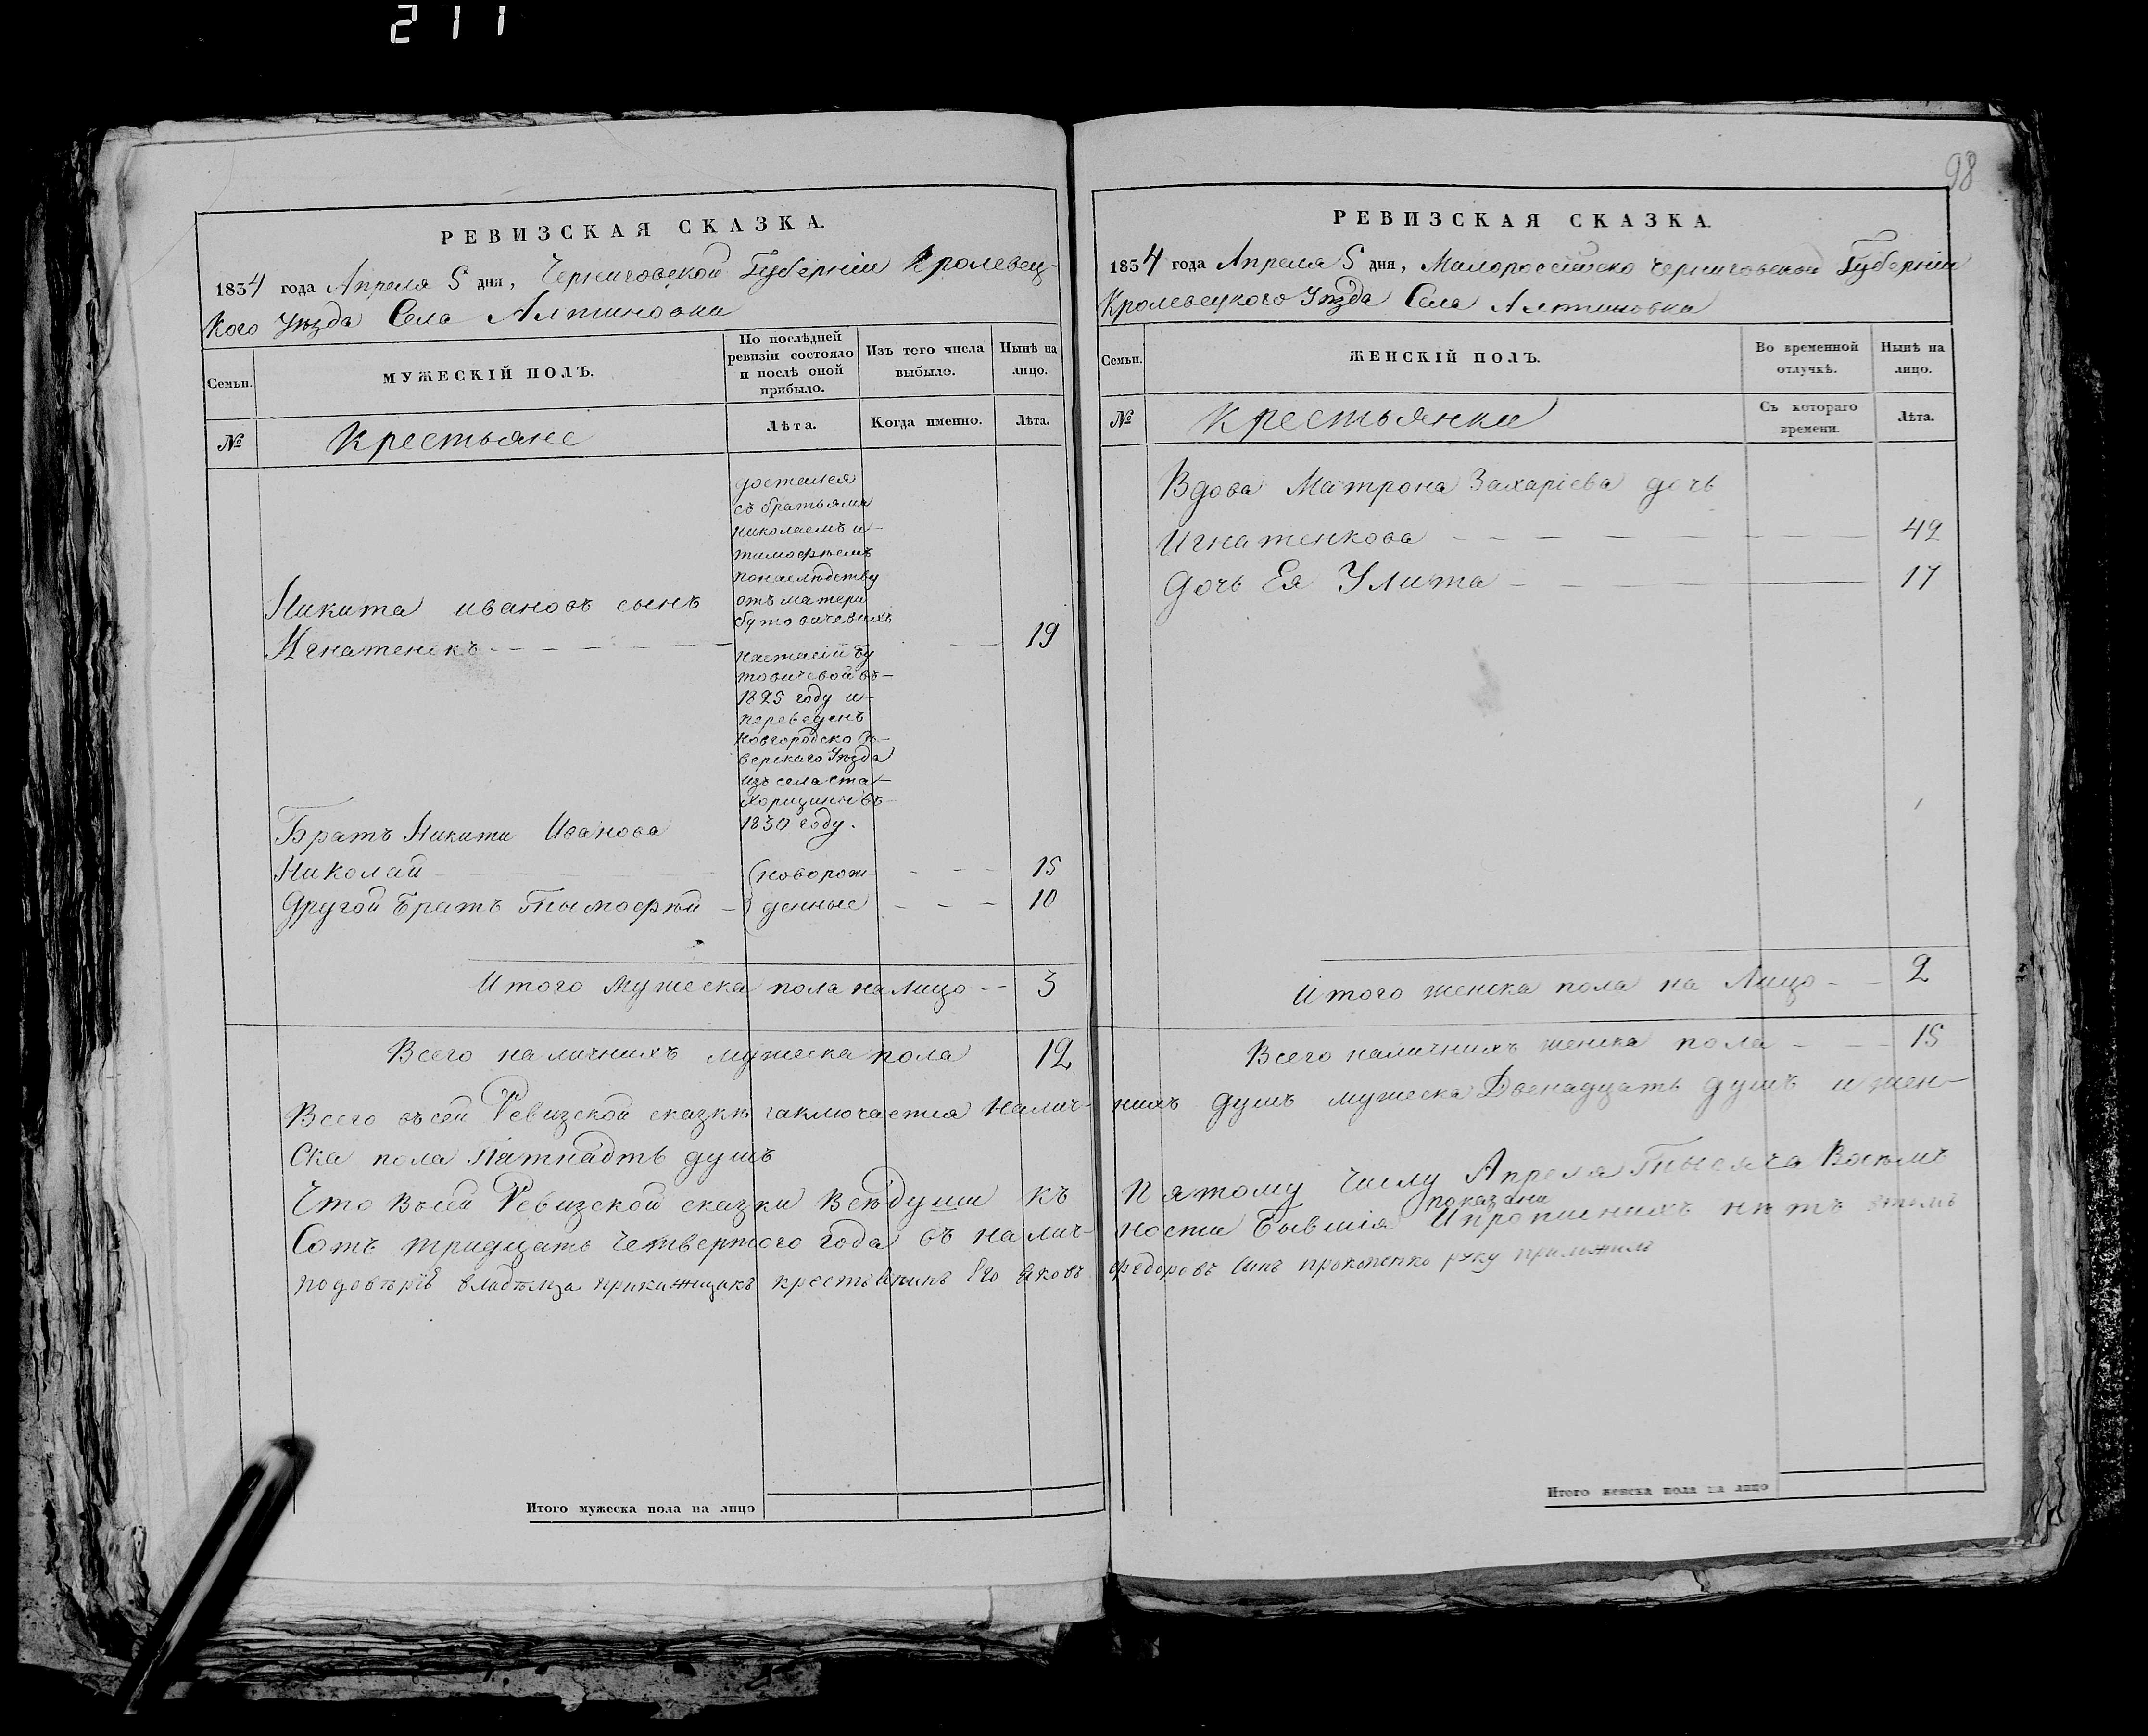 211
РЕВИЗСКАЯ СКАЗКА.
1834 года Апреля 5 дня, Черниговской Губерніи Кролевец-
кого Уезда Села Алтиновки
Семьи.
МУЖЕСКІЙ ПОЛЪ.
По послѣдней ревизіи состояло и послѣ оной прибыло.
Изъ того числа выбыло.
Нынѣ на лицо.
№
Крестьяне
Лѣта.
Когда именно.
Лѣта.
достался
съ братьями
Николаемъ и
тимофѣемъ
понаслѣдству
Никита ивановъ сынъ
отъ матери
бутовичевихъ
Игнатенокъ 19
настасіи Бу
товичевой въ
1825 году и
переведенъ
Новгородско Сѣ-
верскаго Уезда
изъ села
1830 году.
Братъ Никити Иванова
Николай (новорож 15
Другой Братъ Тымофѣй денные 10
Итого мужеска пола на лицо 3
Всего наличнихъ мужеска пола 12
Всего въсей Ревизской сказки заключается Налич-
ска пола Патнадть душъ
Что Всей Ревизской сказки Всѣ души къ
Сотъ тридцать Четвертого года въ налич-
подовѣрію владѣлца прикажщикъ крестьянинъ Его Яковъ
Итого мужеска пола на лицо
98
РЕВИЗСКАЯ СКАЗКА.
1834 года Апреля 5 дня, Малороссійско Черниговской Губерніи
Кролевецкого Уезда Села Алтиновки
Семьи.
ЖЕНСКІЙ ПОЛЪ.
Во временной отлучкѣ.
Нынѣ на лицо.
№
Крестьянки
Съ котораго времени.
Лѣта.
Вдова Матрона Захаріева дочь
Игнатенкова 42
Дочь Ея Улита 17
Итого женска пола на Лицо 2
Всего наличнихъ женска пола 15
нихъ душъ мужеска Двенадцать душъ и жен-
Пятому Числу Апреля Тысяча Восѣмъ
показани
ности Бывшія Ипрописнихъ нѣтъ
федоровъ Синъ прокопенко руку приложилъ
Итого женска пола на лицо